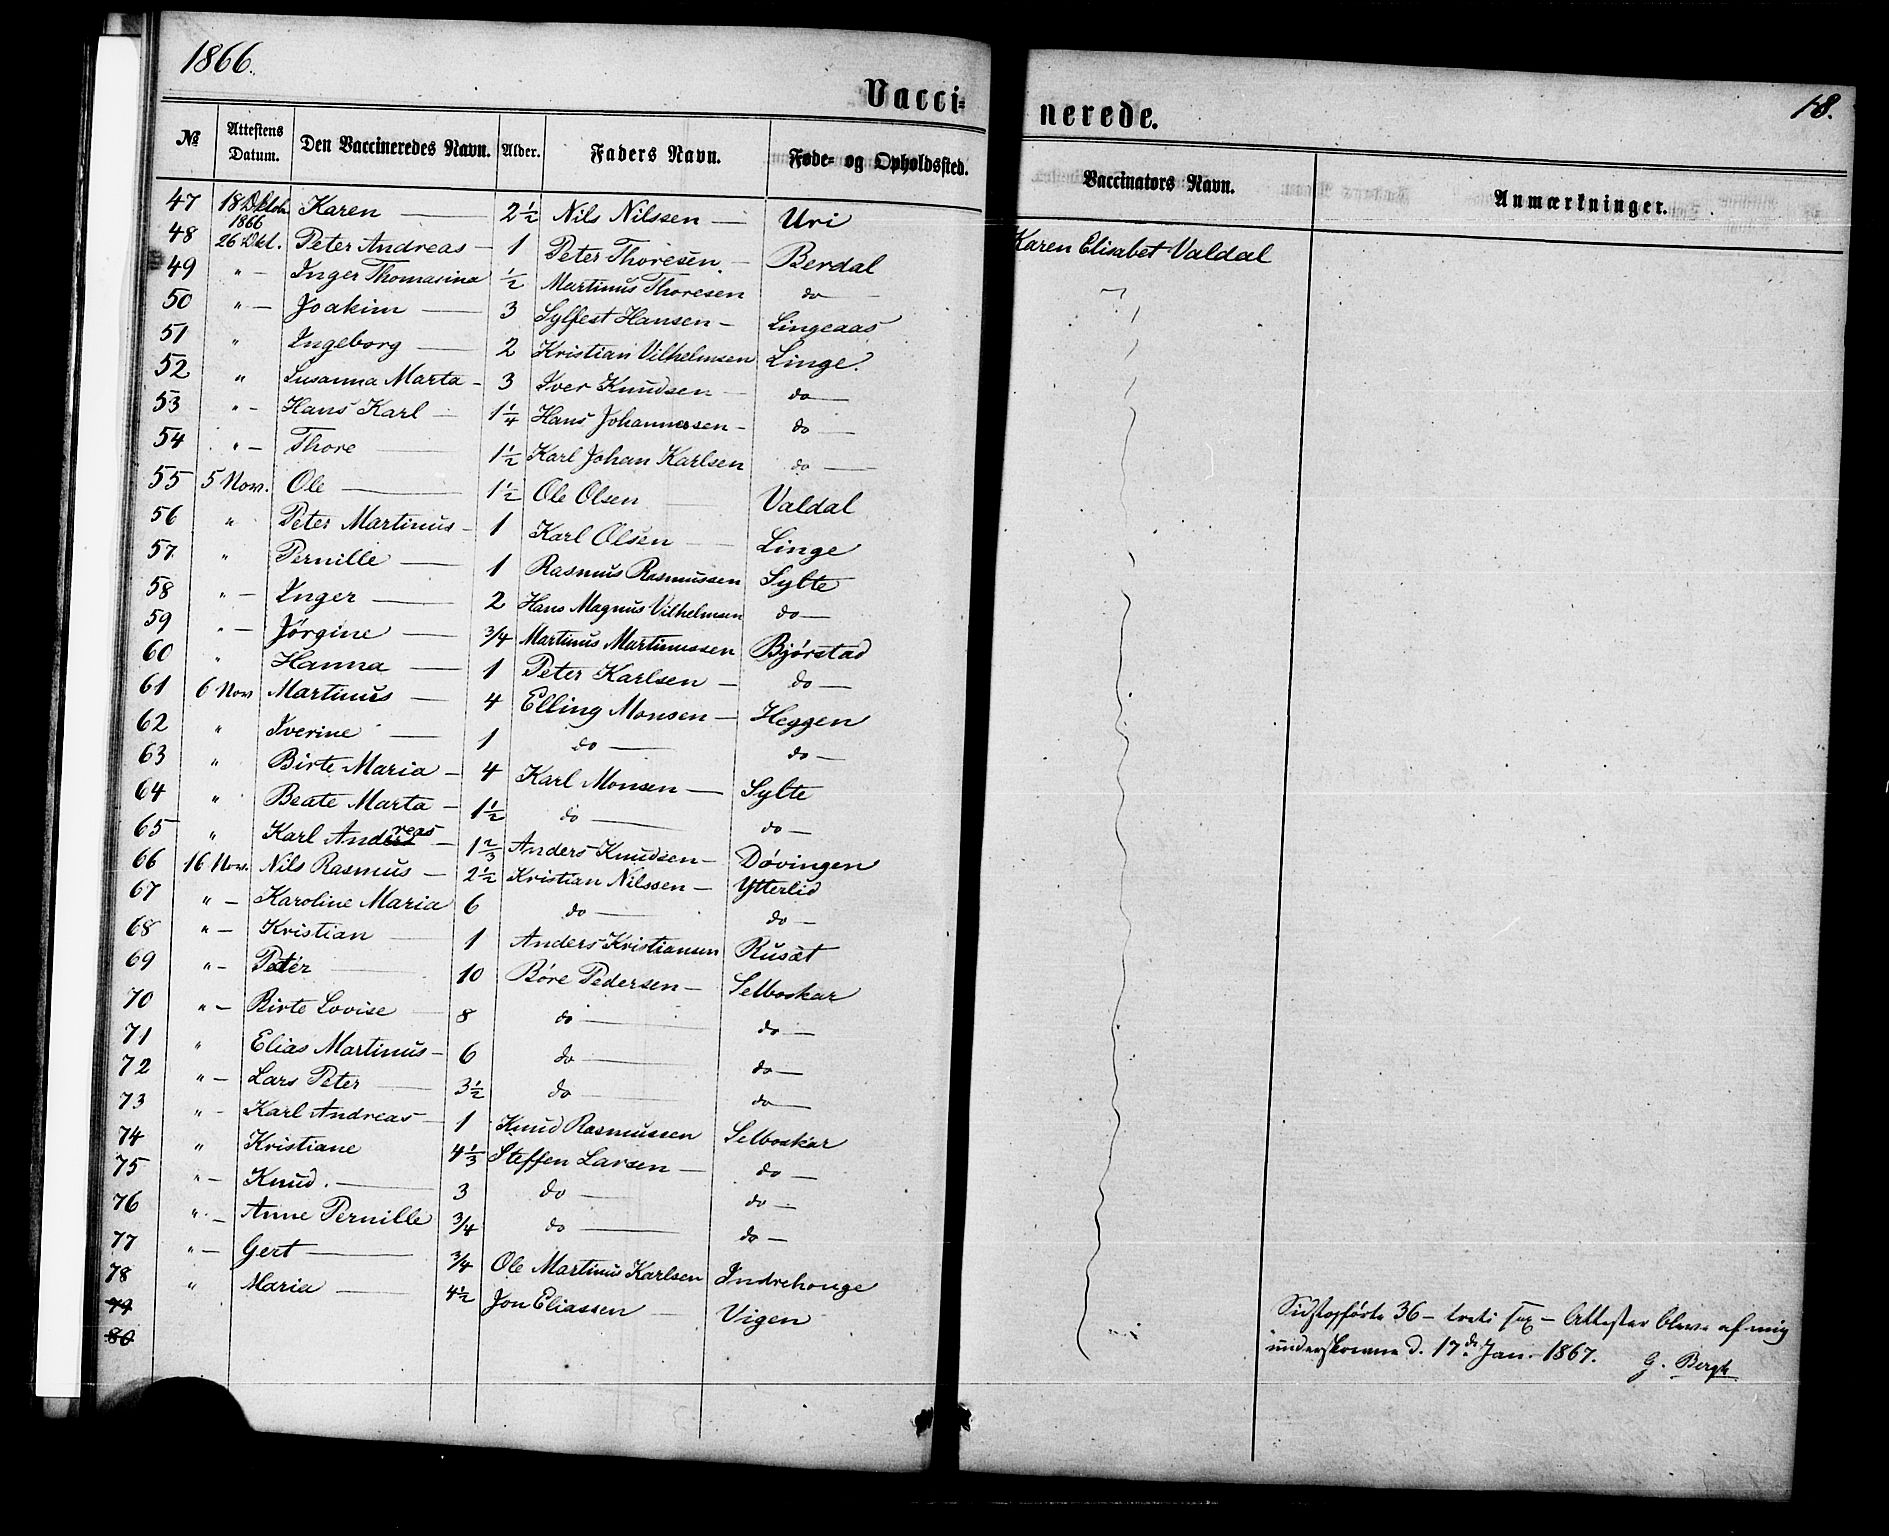 1866.
18.
Vacci=
nerede.
№ Attestens Datum. Den Vaccineredes Navn. Alder. Faders Navn. Føde= og Opholdssted. Vaccinators Navn. Anmærkninger.
47 18 Oktob. 1866 Karen — 2½ Nils Nilssen — Uri Karen Elisabet Valdal
48 26 Okt. Peter Andreas — 1 Peter Thoresen — Berdal
49 " — Inger Thomasina ½ Martinus Thoresen do —
50 " — Joakim — 3 Sylfest Hansen — Lingeaas
51 " Ingeborg — 2 Kristian Vilhelmsen Linge.
52 " Susanna Marta — 3 Iver Knudsen — do —
53 " — Hans Karl — 1¼ Hans Johannessen — do —
54 " — Thore — 1½ Karl Johan Karlsen do —
55 5 Nov. Ole — 1½ Ole Olsen Valdal
56 " Peter Martinus — 1 Karl Olsen — Linge
57 " Pernille — 1 Rasmus Rasmussen Sylte
58 " — Inger — 2 Hans Magnus Vilhelmsen do —
59 " — Jørgine — ¾ Martinus Martinussen Bjørstad
60 " Hanna — 1 Peter Karlsen — do —
61 6 Nov Martinus — 4 Elling Monsen — Heggen
62 " Iverine — 1 do — do —
63 " Birte Maria — 4 Karl Monsen — Sylte
64 " Beate Marta — 1½ do — do —
65 " Karl Andreas — 1⅔ Anders Knudsen — Døvingen
66 16 Nov. Nils Rasmus — 2½ Kristian Nilssen — Ytterlid
67 " — Karoline Maria 6 do — do —
68 " — Kristian — 1 Anders Kristiansen Rusæt
69 " — Peter — 10 Børe Pedersen — Selboskar
70 " — Birte Lovise — 8 do — do —
71 " Elias Martinus — 6 do — do —
72 " — Lars Peter — 3½ do — do —
73 " — Karl Andreas — 1 Knud Rasmussen Selboskar
74 " Kristiane 4⅓ Steffen Larsen — do —
75 " — Knud. — 3 do — do —
76 " — Anne Pernille ¾ do — do —
77 " — Gert — ¾ Ole Martinus Karlsen Indrehonge
78 " Maria — 4½ Jon Eliassen — Vigen
79
80
Sidstopførte 36 — treti sex — Attester bleve af mig
underskrevne d. 17de Jan. 1867. G. Bergh